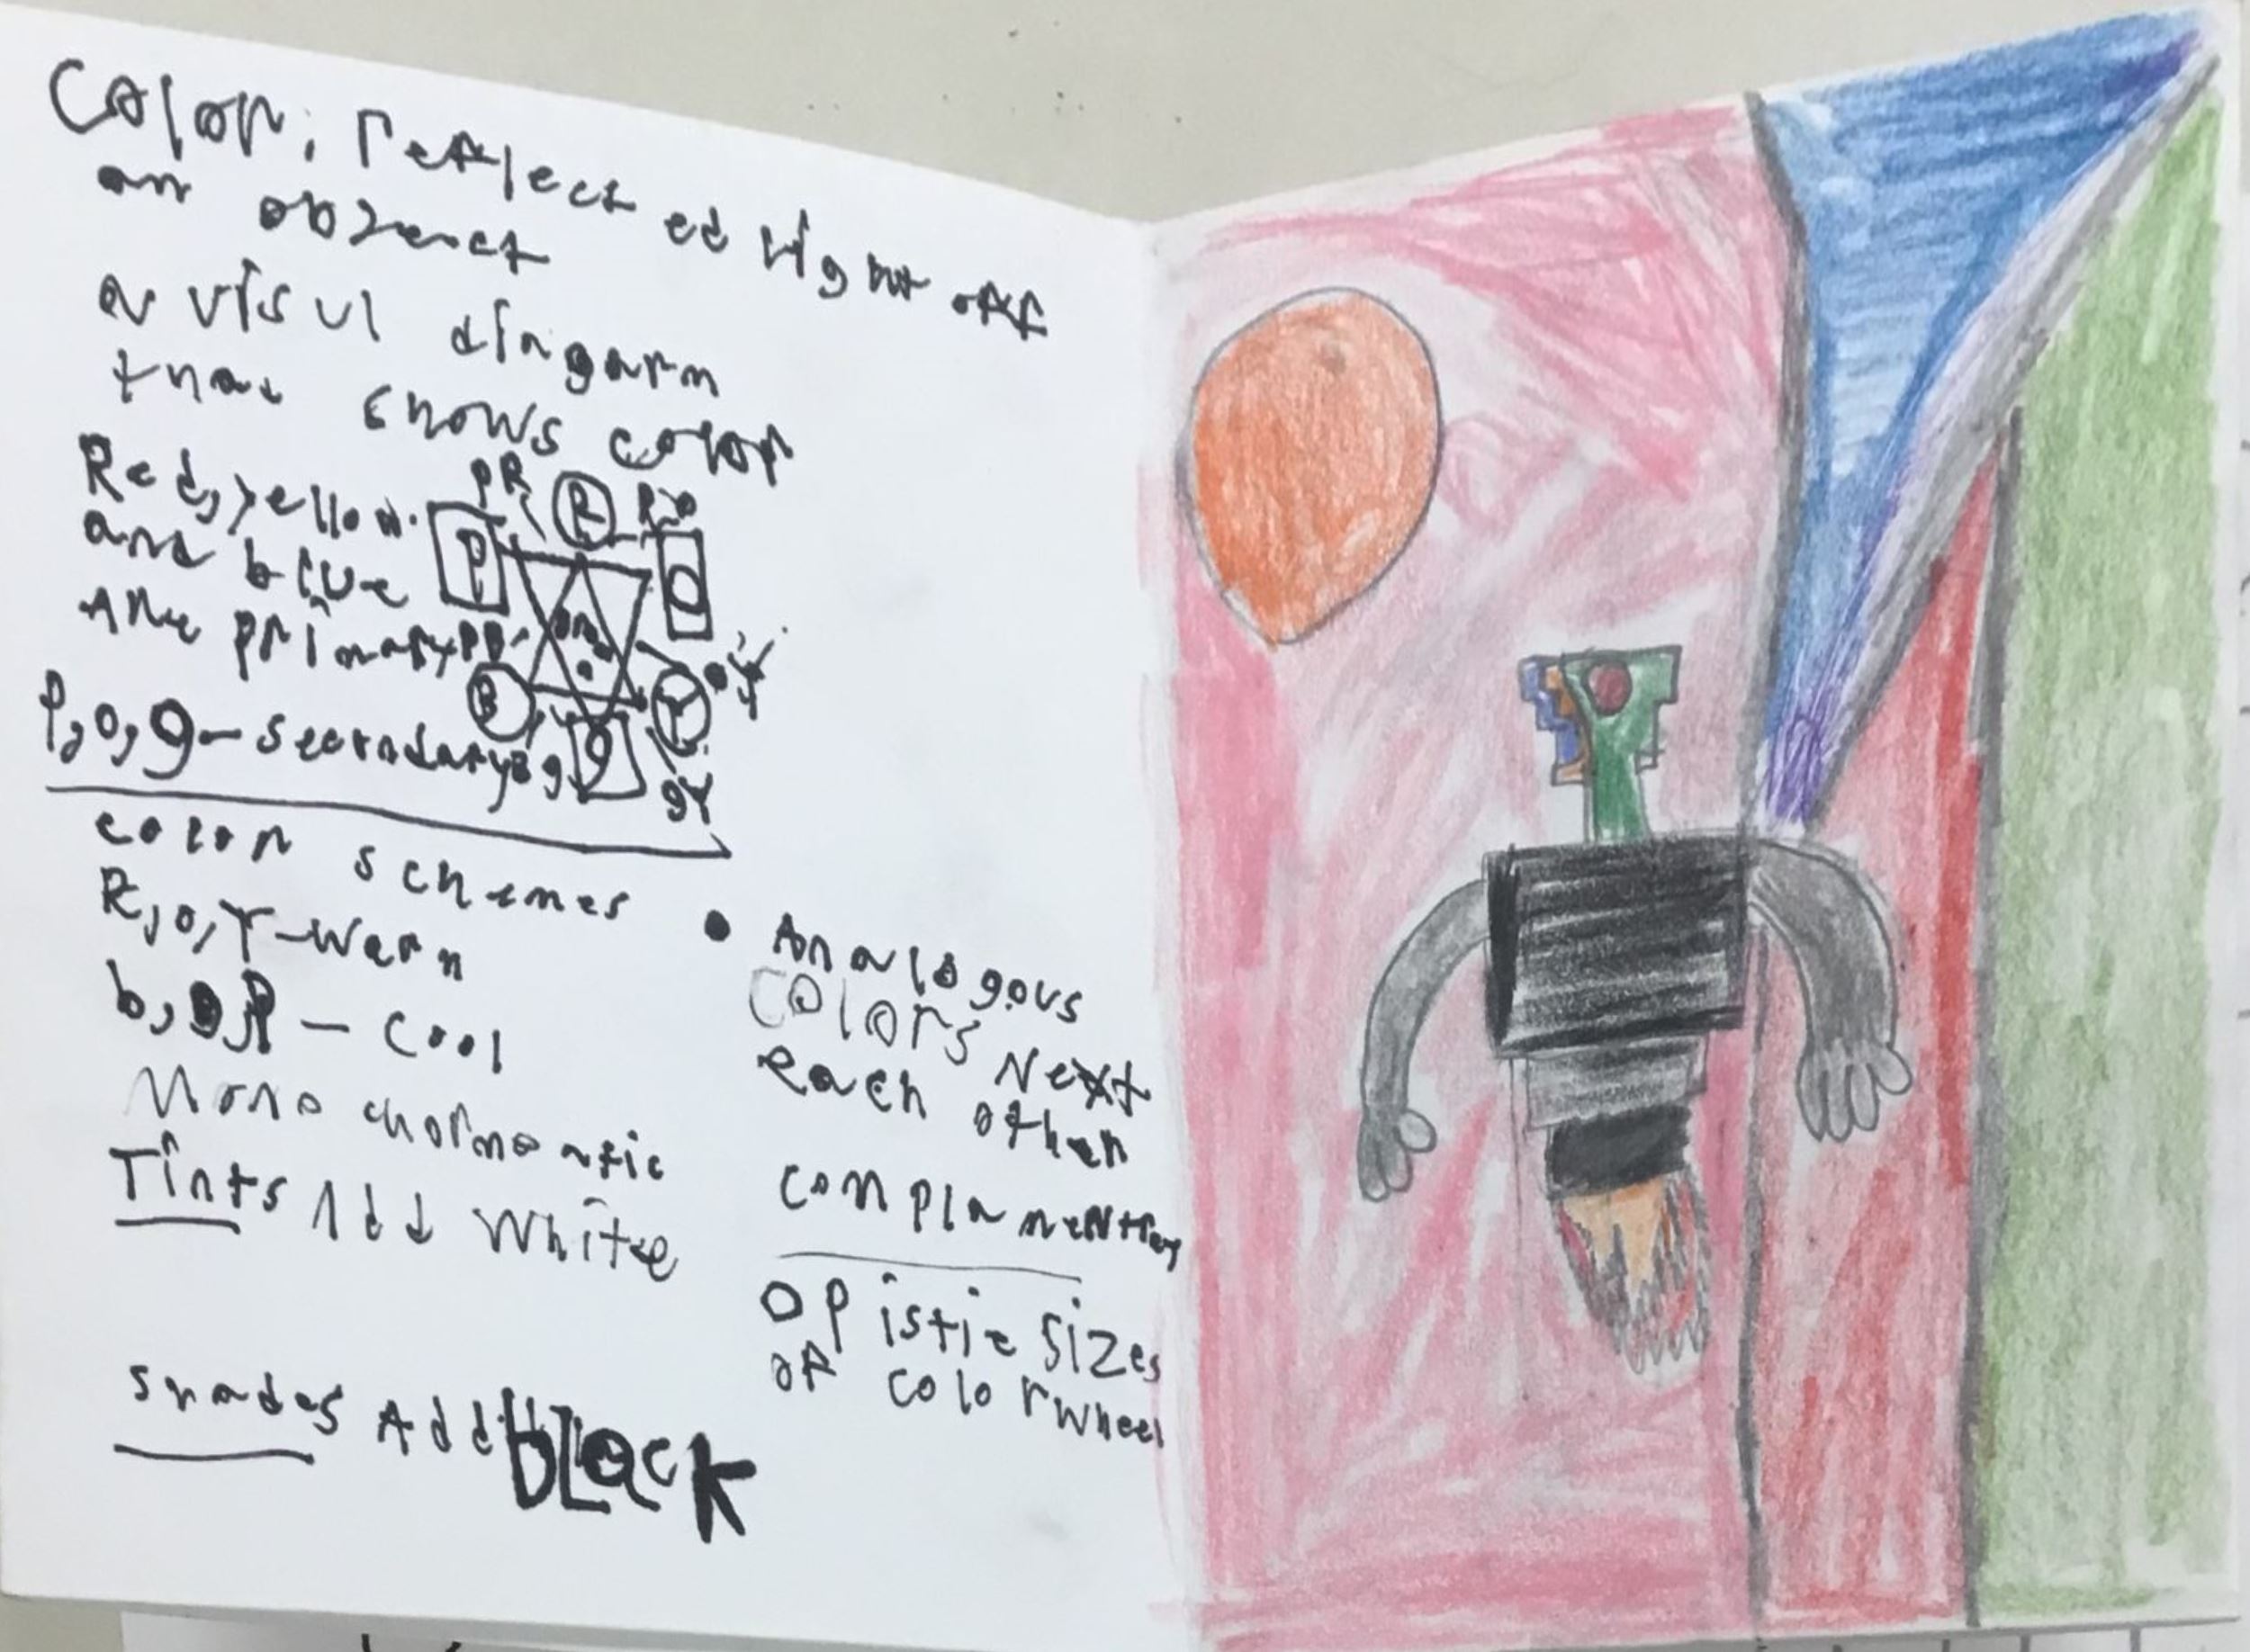 Color: reflected light off
an object
a visul diagarm
that shows color
Red, yellow
and blue
Are primary
P, o, g - secondary
PR
R
RO
P
O
PB
B
Y
OY
Bg
g
gY
color schemes
R, o, Y - warm
b, g, P - cool
Mono chormoatic
Tints Add white
shades Add black
Analogous
colors next
each other
complamentray
opistie sizes
of color wheel